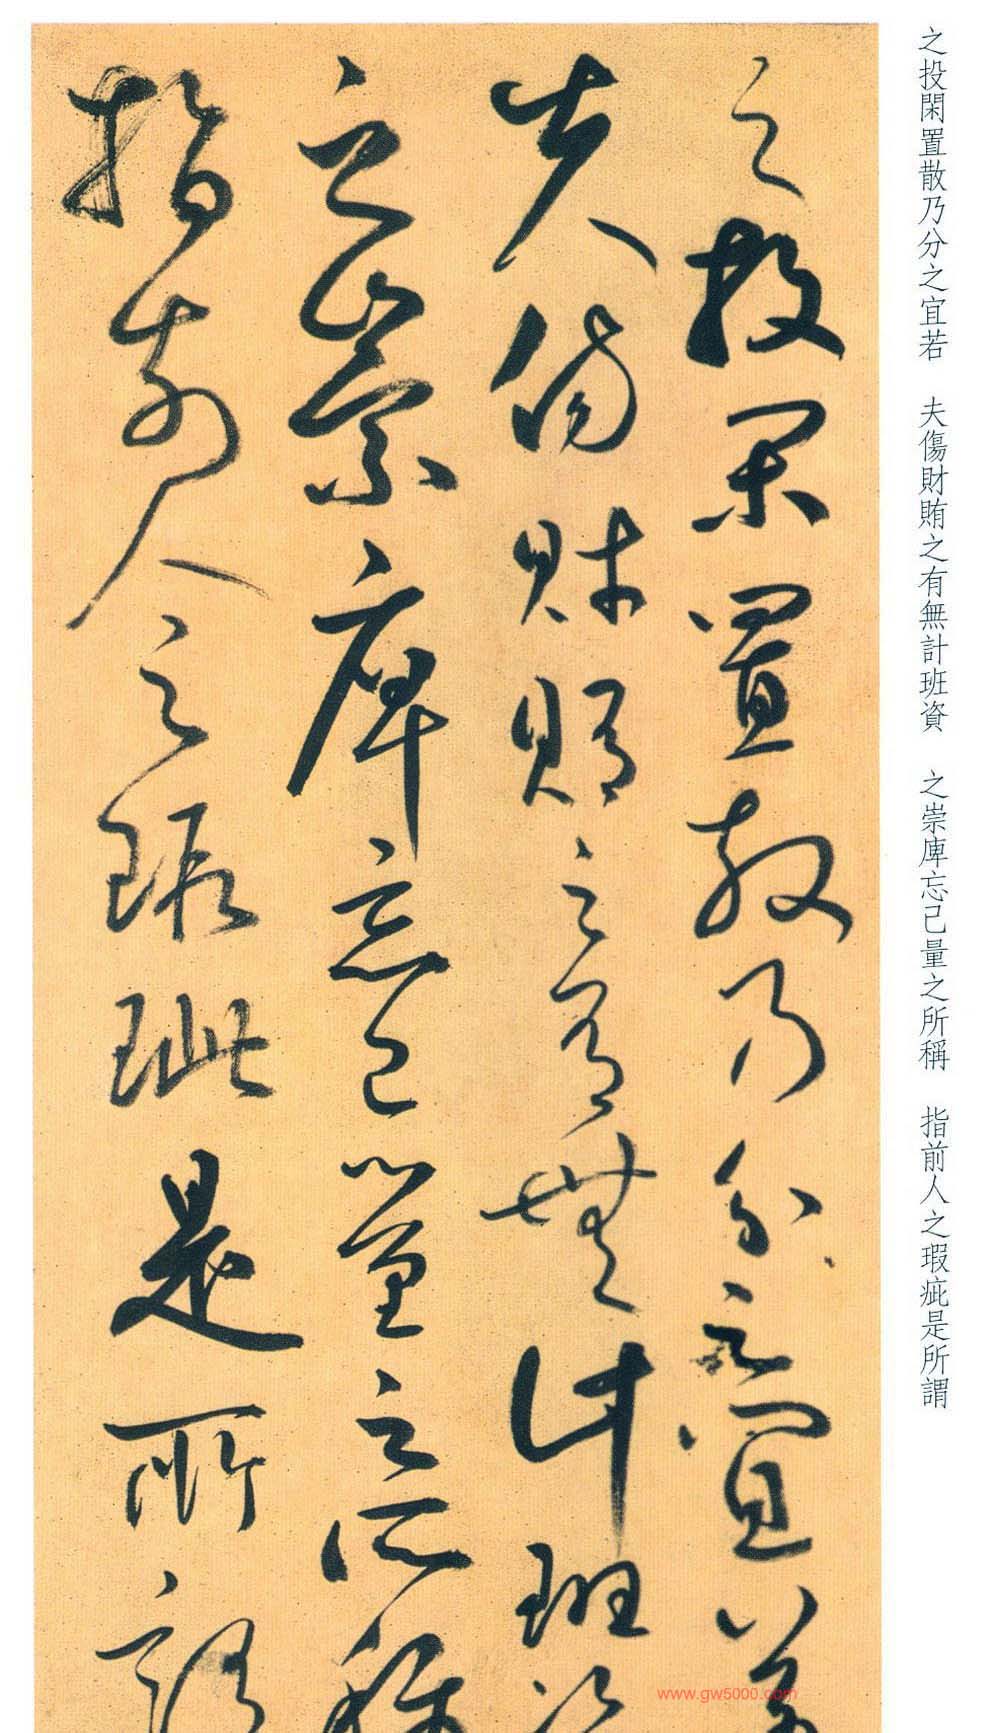 之投閑置散乃分之宜若　夫傷財賄之有無計班資　之崇庳忘己量之所稱　指前人之瑕疵是所謂
之投閑置散乃分之宜若
夫傷財賄之有無計班資
之崇庳忘己量之所稱
指前人之瑕玼是所謂
www.gw5000.com